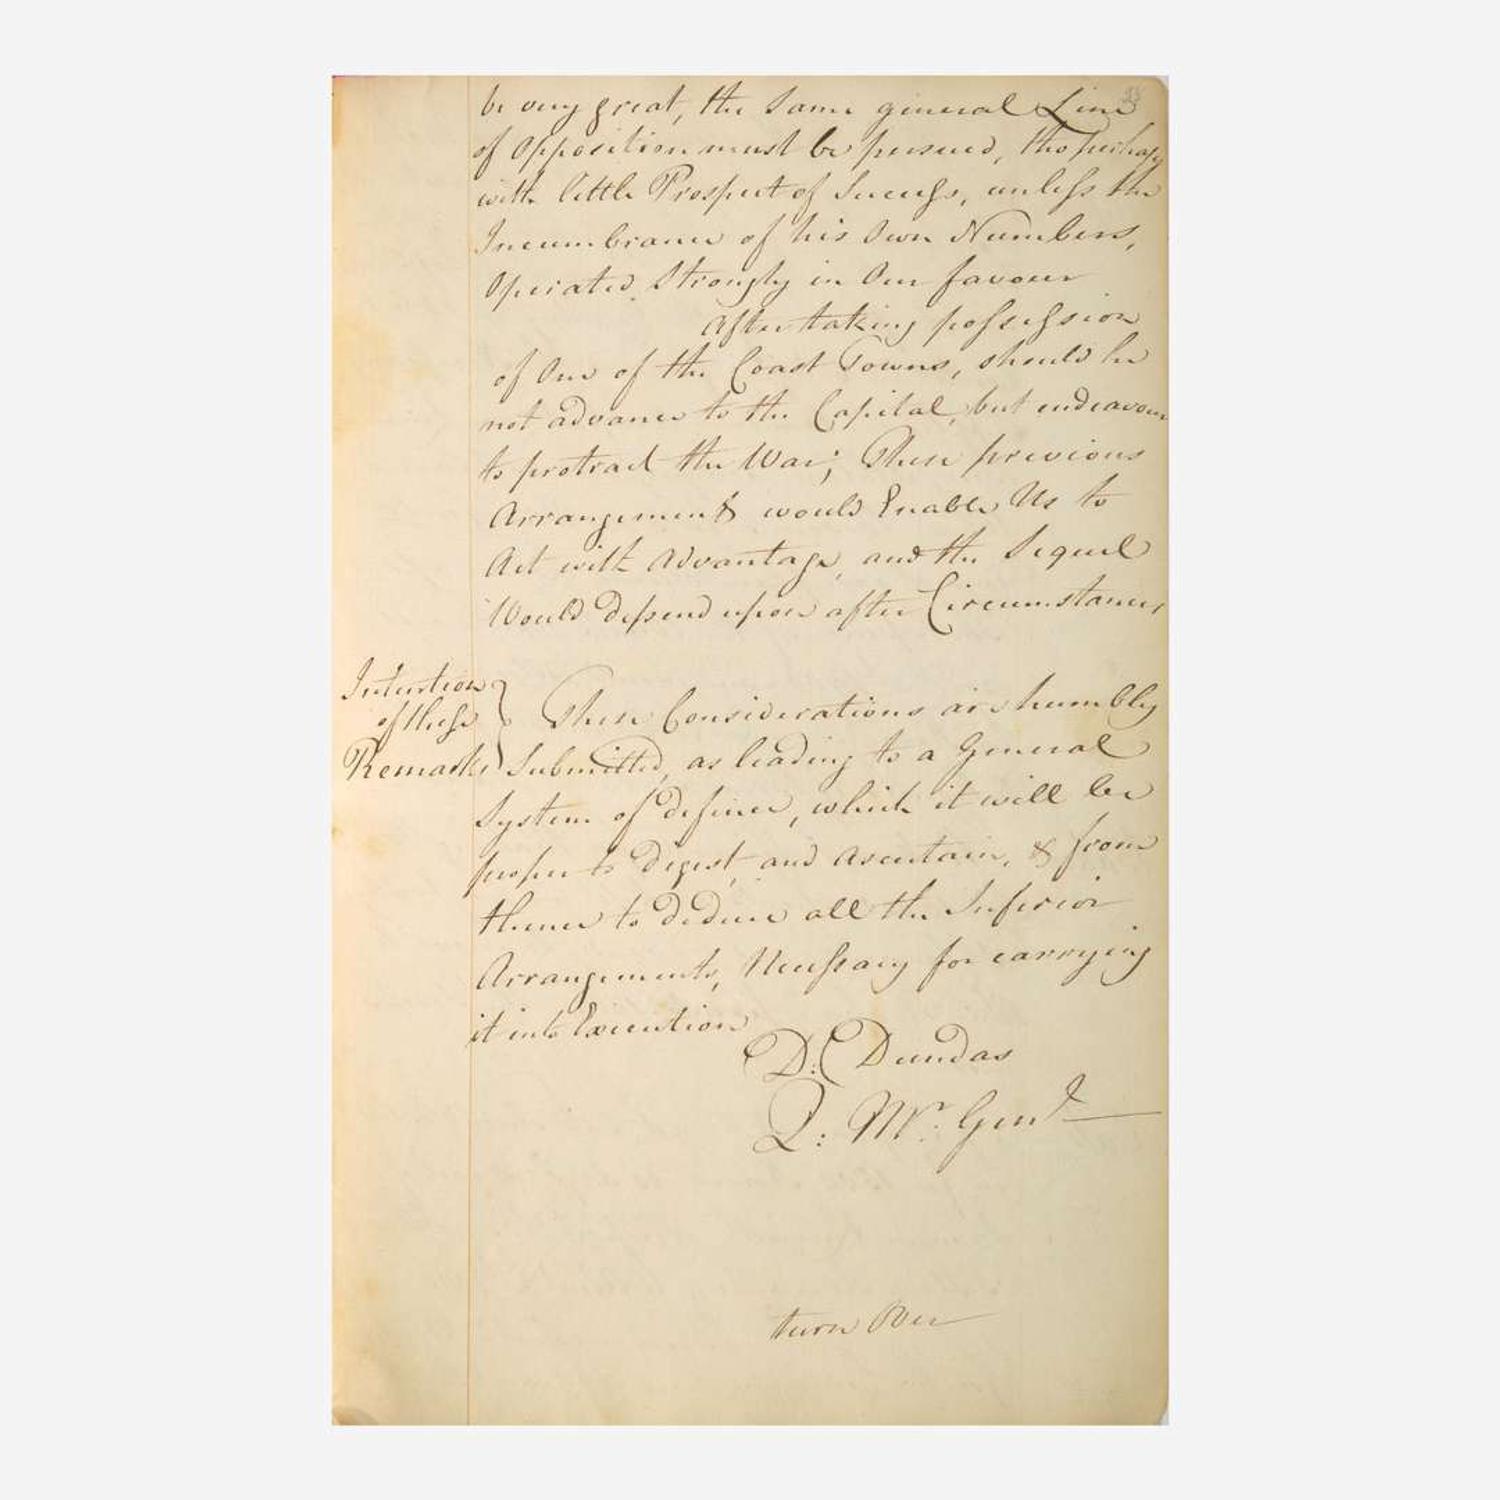 be very great, the Same general Line
of Opposition must be pursued, tho perhaps
with little Prospect of Success, unless the
Incumbrance of his Own Numbers,
Operated Strongly in Our favour
After taking possession
of One of the Coast Towns, should he
not advance to the Capital, but endeavour
to protract the War; These previous
Arrangements would Enable Us to
Act with Advantage, and the Sequel
Would depend upon after Circumstances,
Intention
of these
Remarks
These Considerations are humbly
Submitted, as leading to a General
System of defence, which it will be
proper to Digest, and Ascertain, & from
thence to deduce all the Inferior
Arrangements, Necessary for carrying
it into Execution
D: Dundas
Q: Mr. Genl
turn Over